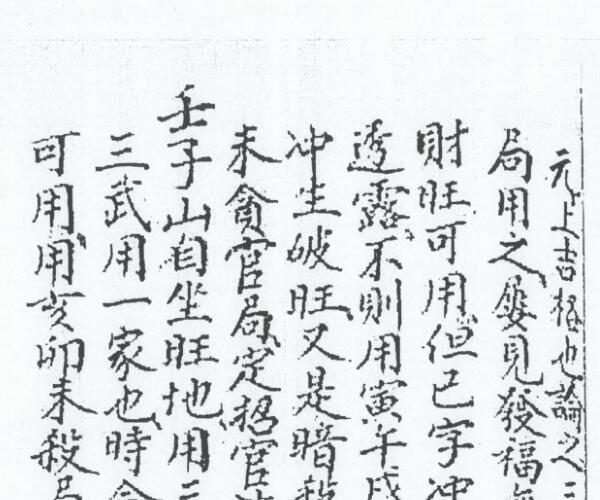 元上吉格也論之二
局用之屡見發福
財旺可用但巳字冲
透露不則用寅午戌
冲生破旺又是暗
未貪官局定招官
壬子山自坐旺地用三
三武用一家也時
可用用亥卯未殺局